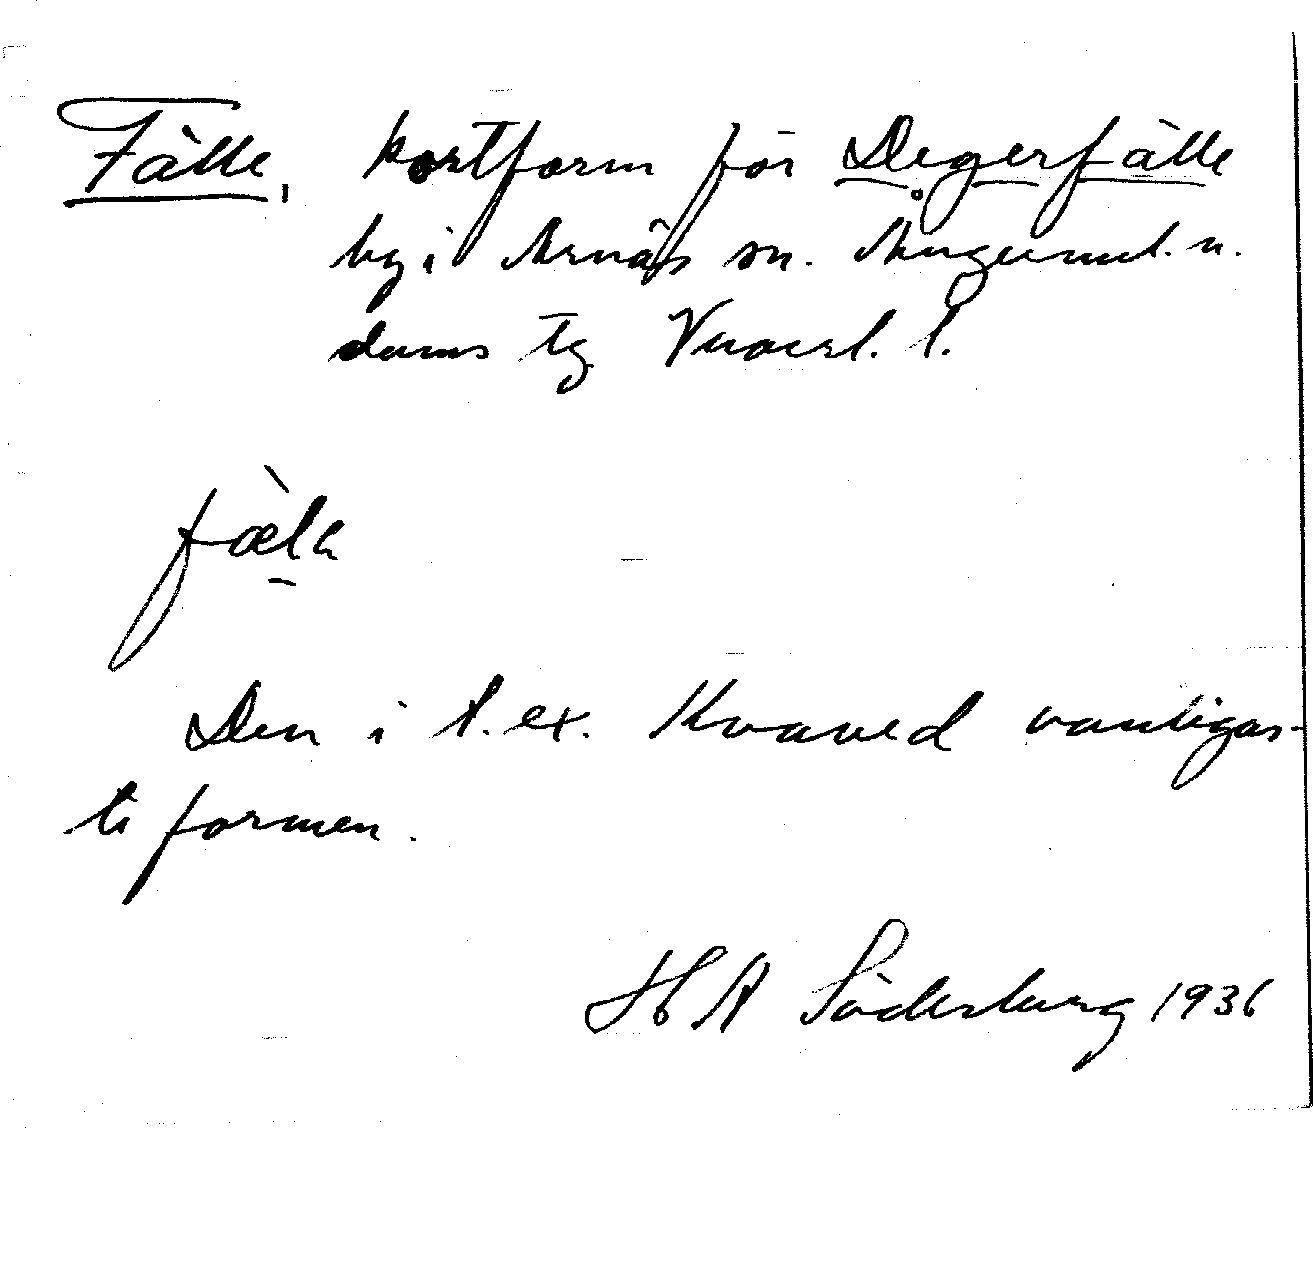 Fälle, kortform för Degerfälle
by i Arnäs sn. Ångermanl. n.
doms tg Vnorrl. l.
fæ̀la
Den i t. ex. Kvaved vanligas-
te formen.
H A Söderberg 1936